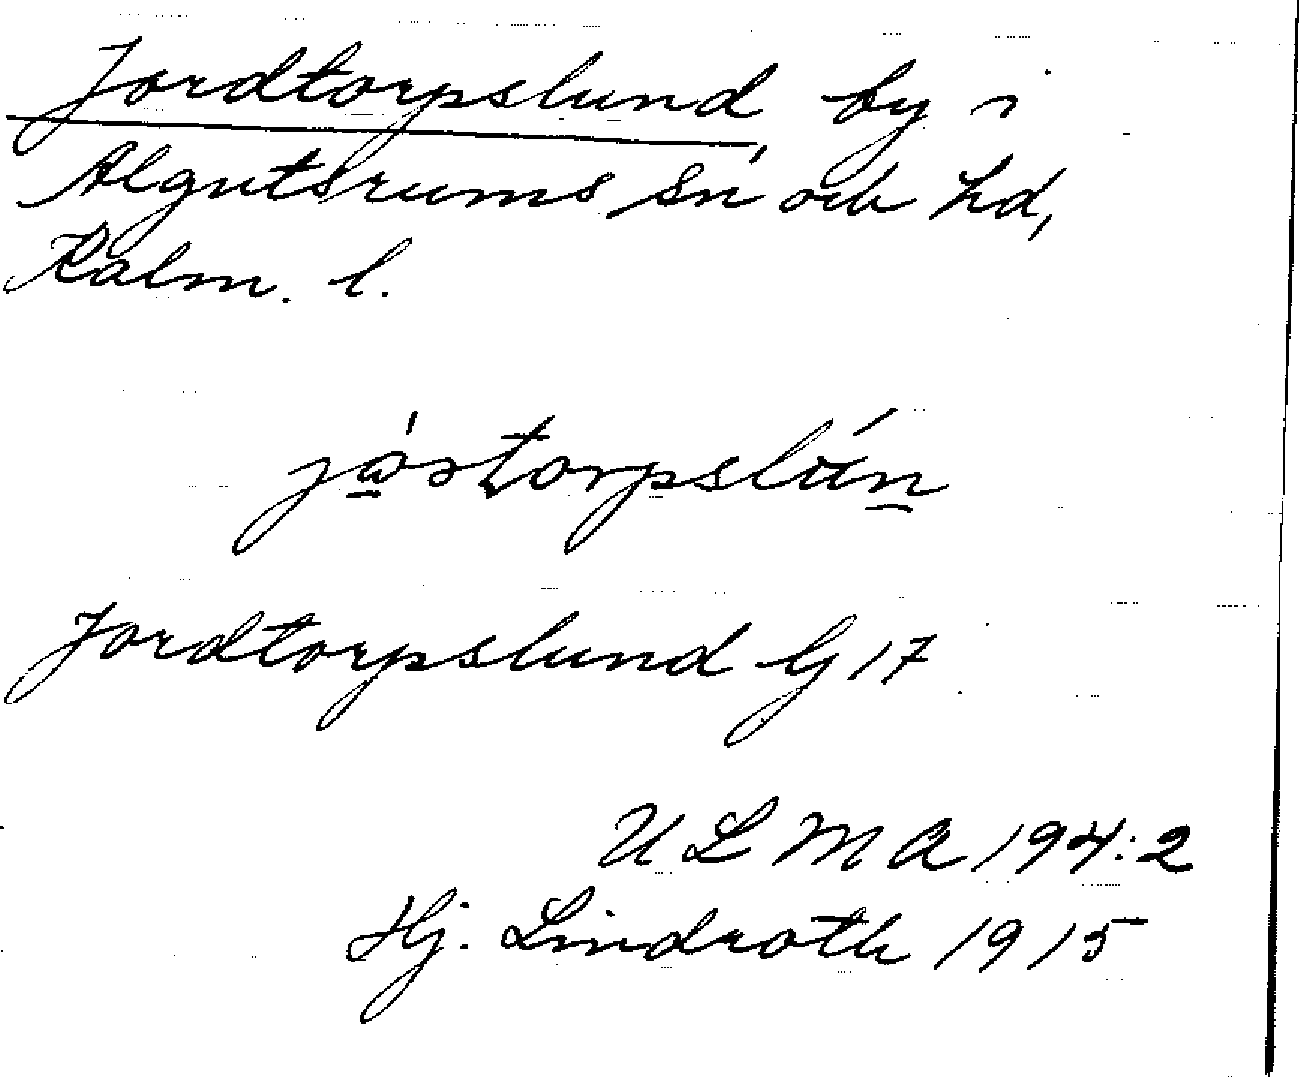 Jordtorpslund, by i
Algutsrums sn och hd,
Kalm. l.
Jordtorpslund G 17
ULMA 194:2
Hj. Lindroth 1915